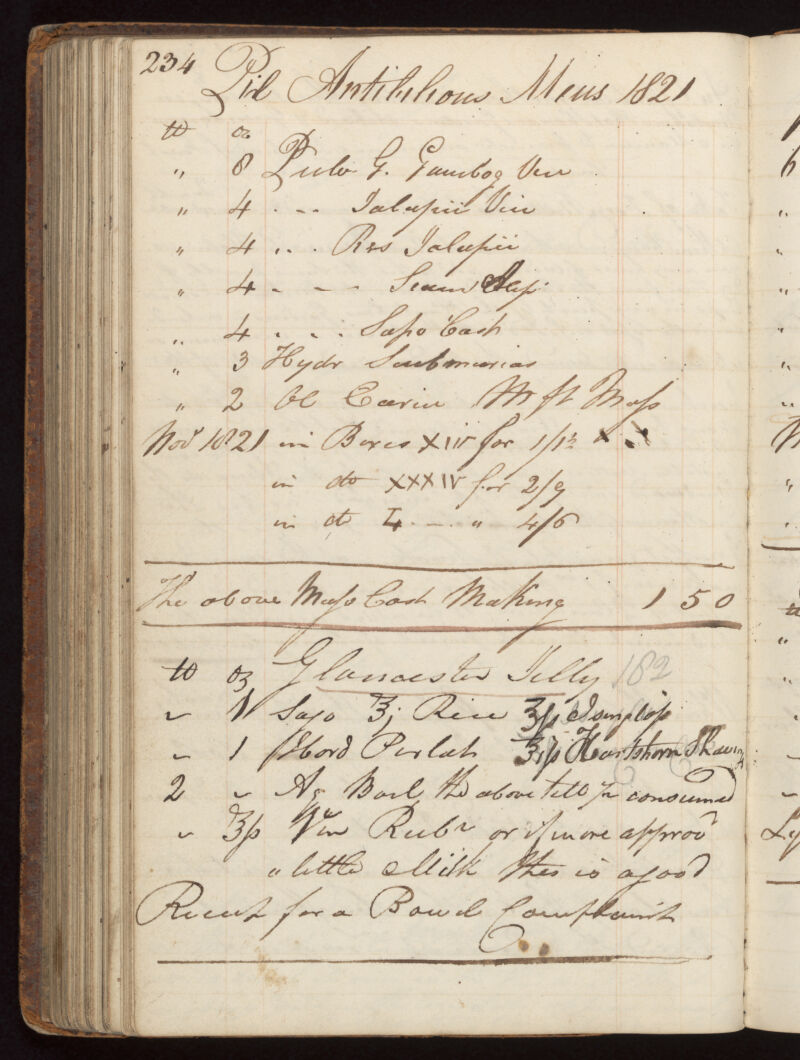 234 Pil Antibilious Meus 1821
lb oz
" 8 Pulv G. Gambog Ven
" 4 . -- Jalapii Ven
" 4 . . . Res Jalapii
" 4 - - -
" 4 - . . Sapo Cast
" 3 Hydr Submurias
" 2 Ol Carui M ft Mass
Novr 1821 in Boxes XIV for 1/1½
in do XXXIV for 2/9
in do L - . - " 4/6
The above Mass Cost Making 1 5 0
lb oz Gloucester Jelly 182
" 1 Sago ℥j Rice ℥ſs
" 1 Hord Perlat ℥ſs Hartshorn Shavings
2 " Aq Boil the above till consumed
" ℥ſs Vin Rubr or if more approvd
" little Milk this is a good
Receipt for a Bowel Complaint